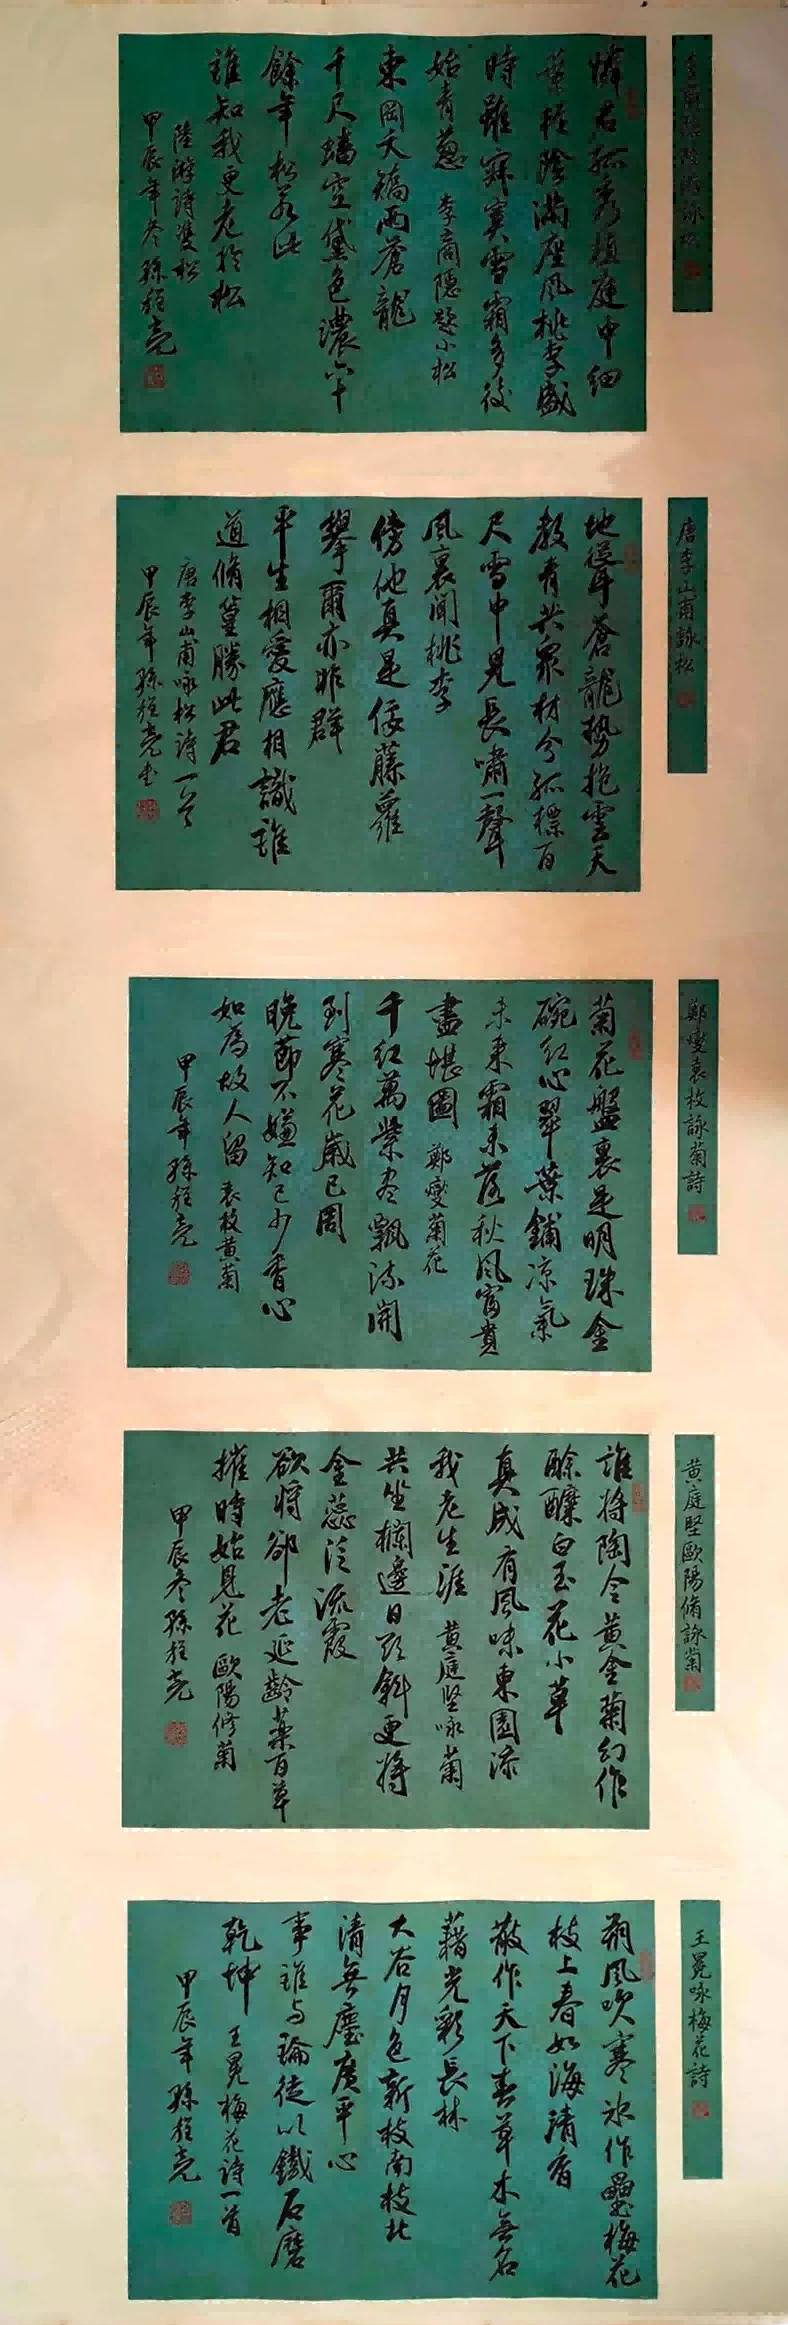 李商隱陸游詠松
憐君孤秀植庭中細
葉輕陰滿座風桃李盛
時雖寂寞雪霜多後
始青蔥 李商隱題小松
東岡天矯兩蒼龍
千尺蟠空黛色濃六十
餘年松若此
誰知我更老於松
陸游詩雙松
甲辰年冬孫程亮
唐李山甫詠松
地聳蒼龍勢抱雲天
教青共眾材分孤標百
尺雪中見長嘯一聲
風裏聞桃李
傍他真是佞藤蘿
攀爾亦非群
平生相愛應相識誰
道脩篁勝此君
唐李山甫咏松詩一首
甲辰年孫程亮书
鄭燮袁枚詠菊詩
菊花盤裏是明珠金
碗紅心翠葉鋪涼氣
未來霜未落秋風富貴
盡堪圖 鄭燮菊花
千紅萬紫盡飄流開
到寒花歲已周
晚節不嫌知己少香心
如為故人留 袁枚黃菊
甲辰年孫程亮
黃庭堅歐陽脩詠菊
誰將陶令黃金菊幻作
酴醾白玉花小草
真成有風味東園添
我老生涯 黃庭堅咏菊
共坐欄邊日欲斜更將
金蕊泛流霞
欲將卻老延齡藥百草
摧時始見花 歐陽修菊
甲辰冬孫程亮
王冕咏梅花詩
朔風吹寒冰作壘梅花
枝上春如海清香
散作天下春草木無名
藉光彩長林
大谷月色新枝南枝北
清無塵廣平心
事誰與論徒以鐵石磨
乾坤 王冕梅花詩一首
甲辰年孫程亮